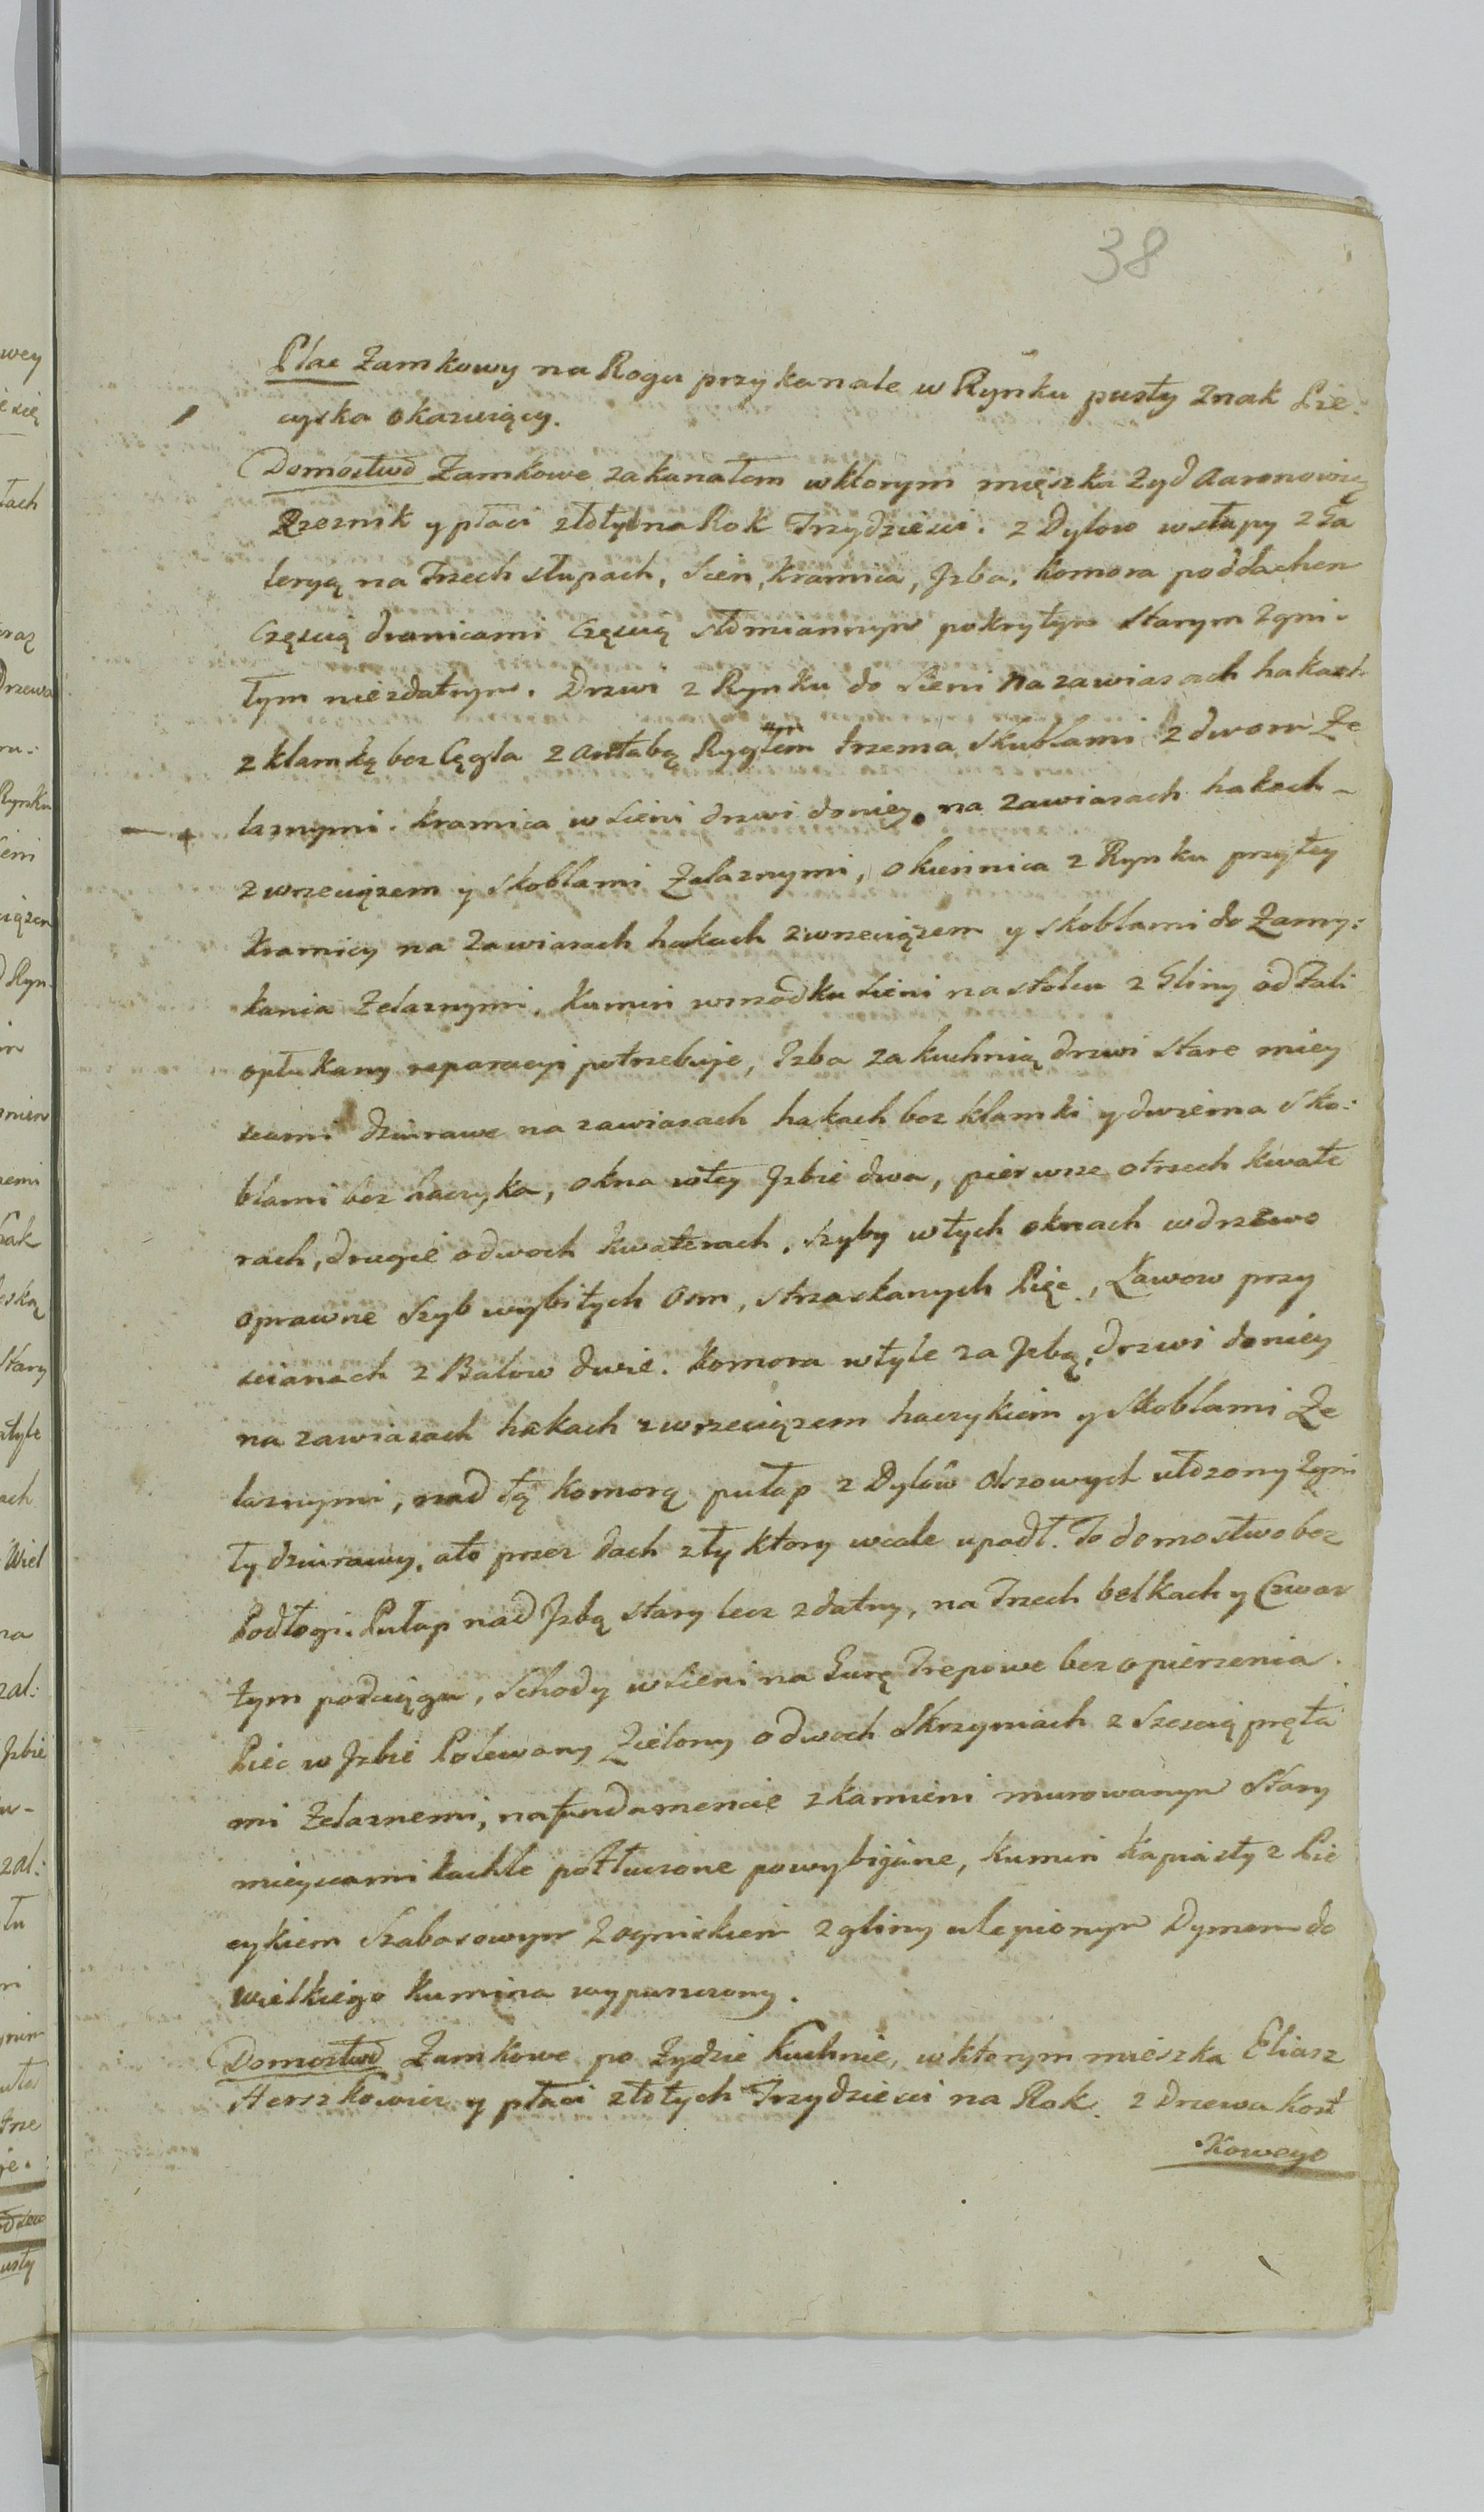 38
Plac Zamkowy na Rogu przy kanale w Rynku pusty znak Pie.
cyska okazuiący.
Domostwo Zamkowe za kanałem w ktorym mięszka Zyd Aaronowicz
Rzeznik y płaci złotych na Rok Trzydzieści. z Dylow w słupy z Ga
leryą na Trzech słupach, Sień, kramica, Jzba, komora pod dachem
częscią dranicami częscią słomiannym pokrytym starym zgni-
łym niezdatnym. Drzwi z Rynku do Sieni na zawiasach hakach
z klamką bez Cęgla z antabą Ryglem trzema skublami z dworu Że
laznymi. kramica w Sieni drzwi do niey na zawiasach hakach -
z wrzeciązem y skoblami Zelaznymi, okiennica z Rynku przy tey
kramicy na zawiasach hakach z wrzeciązem y skoblami do Zamy:
kania Zelaznymi. Kumin w srodku Sieni na stolcu z Gliny od Fali
opłukany reparacyi potrzebuje, Jzba za kuchnią drzwi stare miey
scami dziurawe na zawiasach hakach bez klamki y dwiema sko:
blami bez haczyka, okna w tey Jzbie dwa, pierwsze o trzech kwate
rach, drugie o dwoch kwaterach, szyby w tych oknach w drzewo
oprawne Szyb wybitych osm, strzaskanych Pięc, Ławow przy
scianach z Balow dwie. komora w tyle za Jzbą, drzwi do niey
na zawiasach hakach z wrzeciązem haczykiem y Skoblami Że
laznymi, nad tą komorą pułap z Dylów olszowych ułozony zgni
ły dziurawy, a to przez dach zły ktory wcale upadł. To domostwo bez
Podłogi. Pułap nad Jzbą stary lecz zdatny, na Trzech belkach y Czwar
tym podciągu, Schody w Sieni na Gurę Trepowe bez opierzenia.
Piec w Jzbie Polewany Zielony o dwoch Skrzyniach z Szescią pręta
mi Zelaznemi, na fundamencie z kamieni murowanym Stary
mieyscami kachle potłuczone powybijane, kumin kapiasty z Pie
cykiem Szabasowym z ogniskiem z gliny ulepionym Dymem do
wielkiego Kumina wypuszczony.
Domostwo Zamkowe po Zydzie Kuchnie, w ktorym mieszka Eliasz
Herszkowicz y płaci złotych Trzydzieści na Rok. z Drzewa kost
kowego